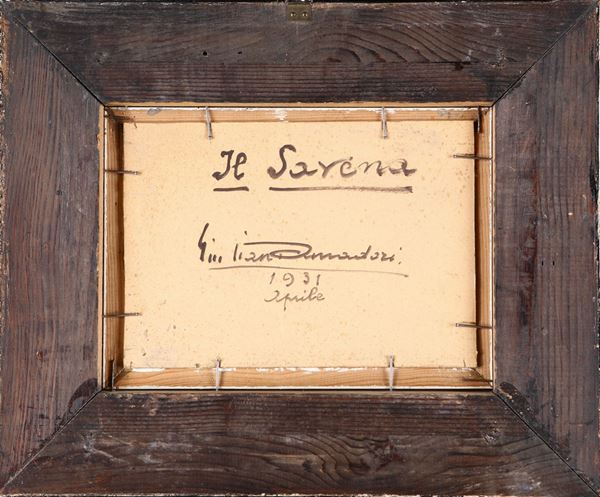 Il Savena
Giulian Amadori
1931
aprile